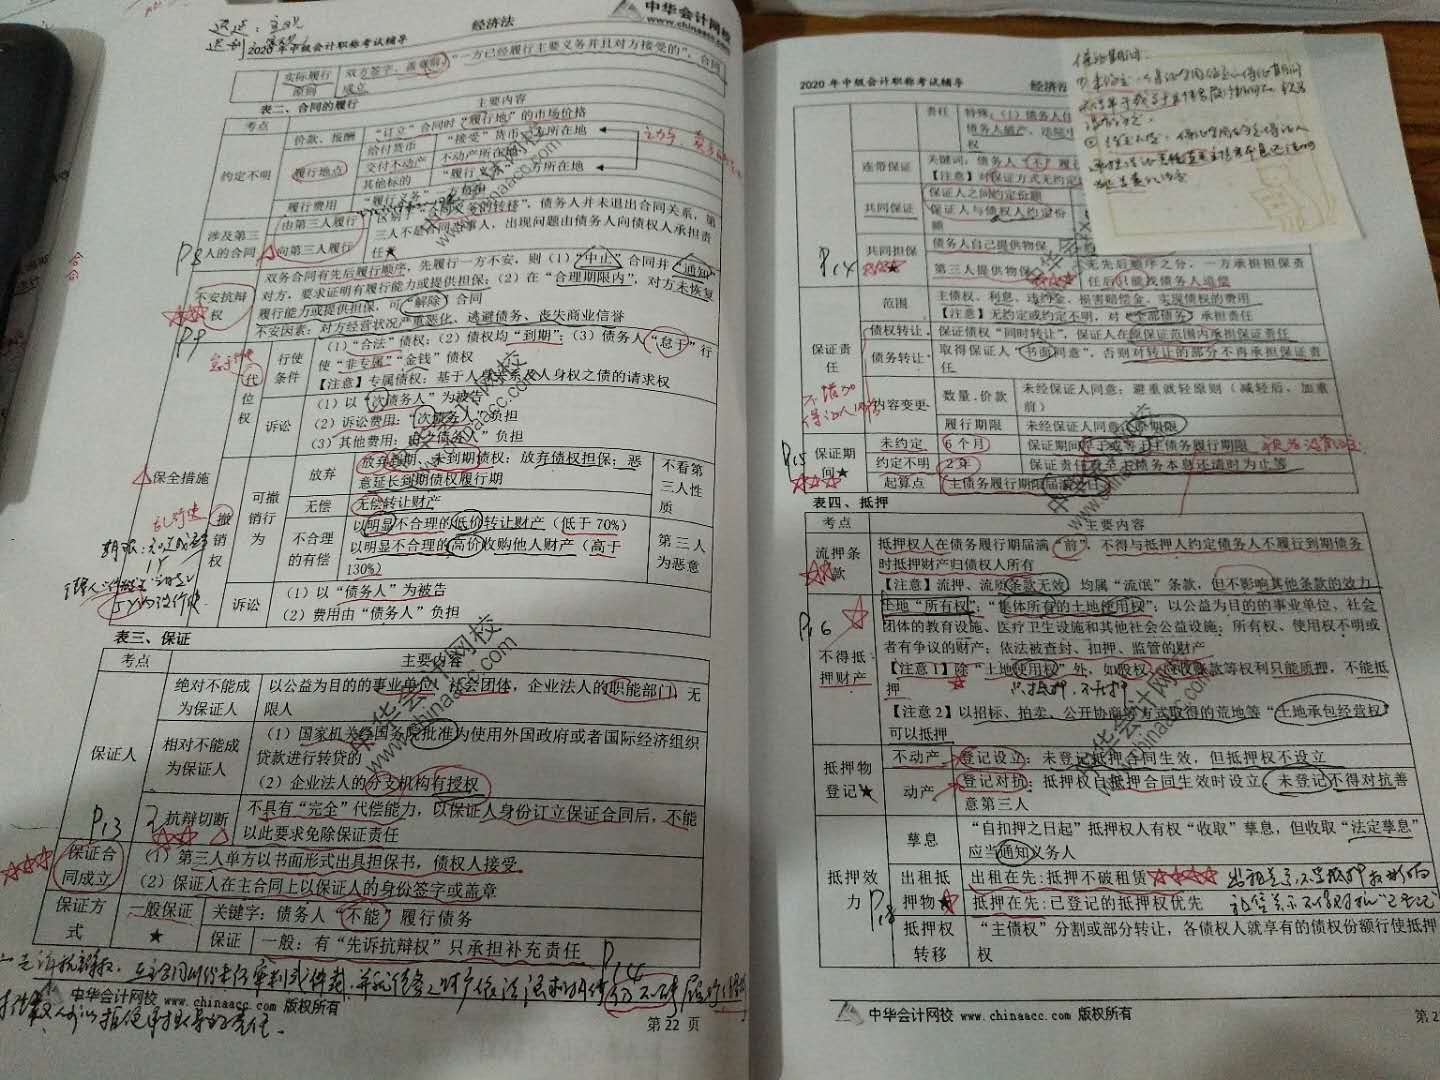 迟延:主观
中华会计网校
www.chinaacc.com
2020年中级会计职称考试辅导
经济法
实际履行原则
双方签字、盖章前,“一方已经履行主要义务并且对方接受的”,合同成立
表二、合同的履行
考点
主要内容
约定不明
价款、报酬
“订立”合同时“履行地”的市场价格
履行地点
给付货币
“接受”货币一方所在地
交付不动产
不动产所在地
其他标的
“履行义务”一方所在地
履行费用
“履行义务”一方负担
涉及第三人的合同
由第三人履行
向第三人履行
区别于“合同义务的转移”,债务人并未退出合同关系,第
三人不是合同当事人,出现问题由债务人向债权人承担责
任★
P8
不安抗辩权
双务合同有先后履行顺序,先履行一方不安,则(1)“中止”合同并“通知”
对方,要求证明有履行能力或提供担保;(2)在“合理期限内”,对方未恢复
履行能力或提供担保,可“解除”合同
不安因素:对方经营状况严重恶化、逃避债务、丧失商业信誉
P9
保全措施
代位权
行使条件
(1)“合法”债权;(2)债权均“到期”;(3)债务人“怠于”行
使“非专属”“金钱”债权
【注意】专属债权:基于人身关系及人身权之债的请求权
诉讼
(1)以“次债务人”为被告
(2)诉讼费用:“次债务人”负担
(3)其他费用:由“债务人”负担
撤销权
可撤销行为
放弃
放弃到期、未到期债权;放弃债权担保;恶
意延长到期债权履行期
不看第三人性质
无偿
无偿转让财产
不合理的有偿
以明显不合理的低价转让财产(低于70%)
以明显不合理的高价收购他人财产(高于
130%)
第三人为恶意
诉讼
(1)以“债务人”为被告
(2)费用由“债务人”负担
表三、保证
考点
主要内容
保证人
绝对不能成为保证人
以公益为目的的事业单位、社会团体,企业法人的职能部门,无
限人
相对不能成为保证人
(1)国家机关经国务院批准为使用外国政府或者国际经济组织
贷款进行转贷的
(2)企业法人的分支机构有授权
P13
抗辩切断
不具有“完全”代偿能力,以保证人身份订立保证合同后,不能
以此要求免除保证责任
保证合同成立
(1)第三人单方以书面形式出具担保书,债权人接受。
(2)保证人在主合同上以保证人的身份签字或盖章
保证方式
一般保证★
关键字:债务人“不能”履行债务
保证
一般:有“先诉抗辩权”只承担补充责任
P14
中华会计网校 www.chinaacc.com 版权所有
第 22 页
2020年中级会计职称考试辅导
经济法
保证期间:
责任
特殊:(1)债务人住
债务人破产、法院
连带保证
关键词:债务人“不”履行
【注意】对保证方式无约定
共同保证
保证人之间约定份额
保证人与债权人约定份
额
P14
共同担保
债务人自己提供物保
第三人提供物保
无先后顺序之分,一方承担担保责
任后可就找债务人追偿
保证责任
范围
主债权、利息、违约金、损害赔偿金、实现债权的费用
【注意】无约定或约定不明,对“全部债务”承担责任
债权转让
保证债权“同时转让”,保证人在原保证范围内承担保证责任
债务转让
取得保证人“书面同意”,否则对转让的部分不再承担保证责
任
不增加
保证人
内容变更
数量、价款
未经保证人同意:避重就轻原则(减轻后、加重
前)
履行期限
未经保证人同意:原期限
P15
保证期间★
未约定
6个月
保证期间早于或等于主债务履行期限
约定不明
2年
保证责任直至主债务本息还清时为止等
起算点
主债务履行期限届满之日
表四、抵押
考点
主要内容
流押条款
抵押权人在债务履行期届满“前”,不得与抵押人约定债务人不履行到期债务
时抵押财产归债权人所有
【注意】流押、流质条款无效,均属“流氓”条款,但不影响其他条款的效力
P16
不得抵押财产
土地“所有权”;“集体所有的土地使用权”;以公益为目的的事业单位、社会
团体的教育设施、医疗卫生设施和其他社会公益设施;所有权、使用权不明或
者有争议的财产;依法被查封、扣押、监管的财产
【注意1】除“土地使用权”外,如股权、应收账款等权利只能质押,不能抵
押
【注意2】以招标、拍卖、公开协商等方式取得的荒地等“土地承包经营权”
可以抵押
抵押物登记★
不动产
登记设立:未登记抵押合同生效,但抵押权不设立
动产
登记对抗:抵押权自抵押合同生效时设立,未登记不得对抗善
意第三人
抵押效力
P18
孳息
“自扣押之日起”抵押权人有权“收取”孳息,但收取“法定孳息”
应当通知义务人
出租抵押物★
出租在先:抵押不破租赁
抵押在先:已登记的抵押权优先
抵押权转移
“主债权”分割或部分转让,各债权人就享有的债权份额行使抵押
权
中华会计网校 www.chinaacc.com 版权所有